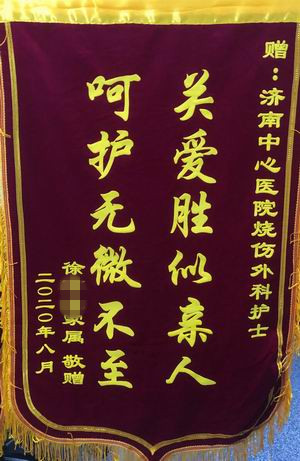 赠：济南中心医院烧伤外科护士
关爱胜似亲人
呵护无微不至
徐 家属 敬赠
二〇二〇年八月